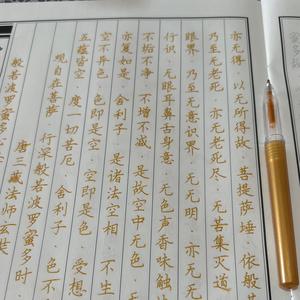 般若波罗蜜多心
唐三藏法师玄奘
观自在菩萨·行深般若波罗蜜多时
五蕴皆空·度一切苦厄·舍利子·色不
空不异色·色即是空·空即是色·受想
亦复如是·舍利子·是诸法空相·不生
不垢不净·不增不减·是故空中无色·无
行识·无眼耳鼻舌身意·无色声香味触
眼界·乃至无意识界·无无明·亦无
乃至无老死·亦无老死尽·无苦集灭道
亦无得·以无所得故·菩提萨埵·依般